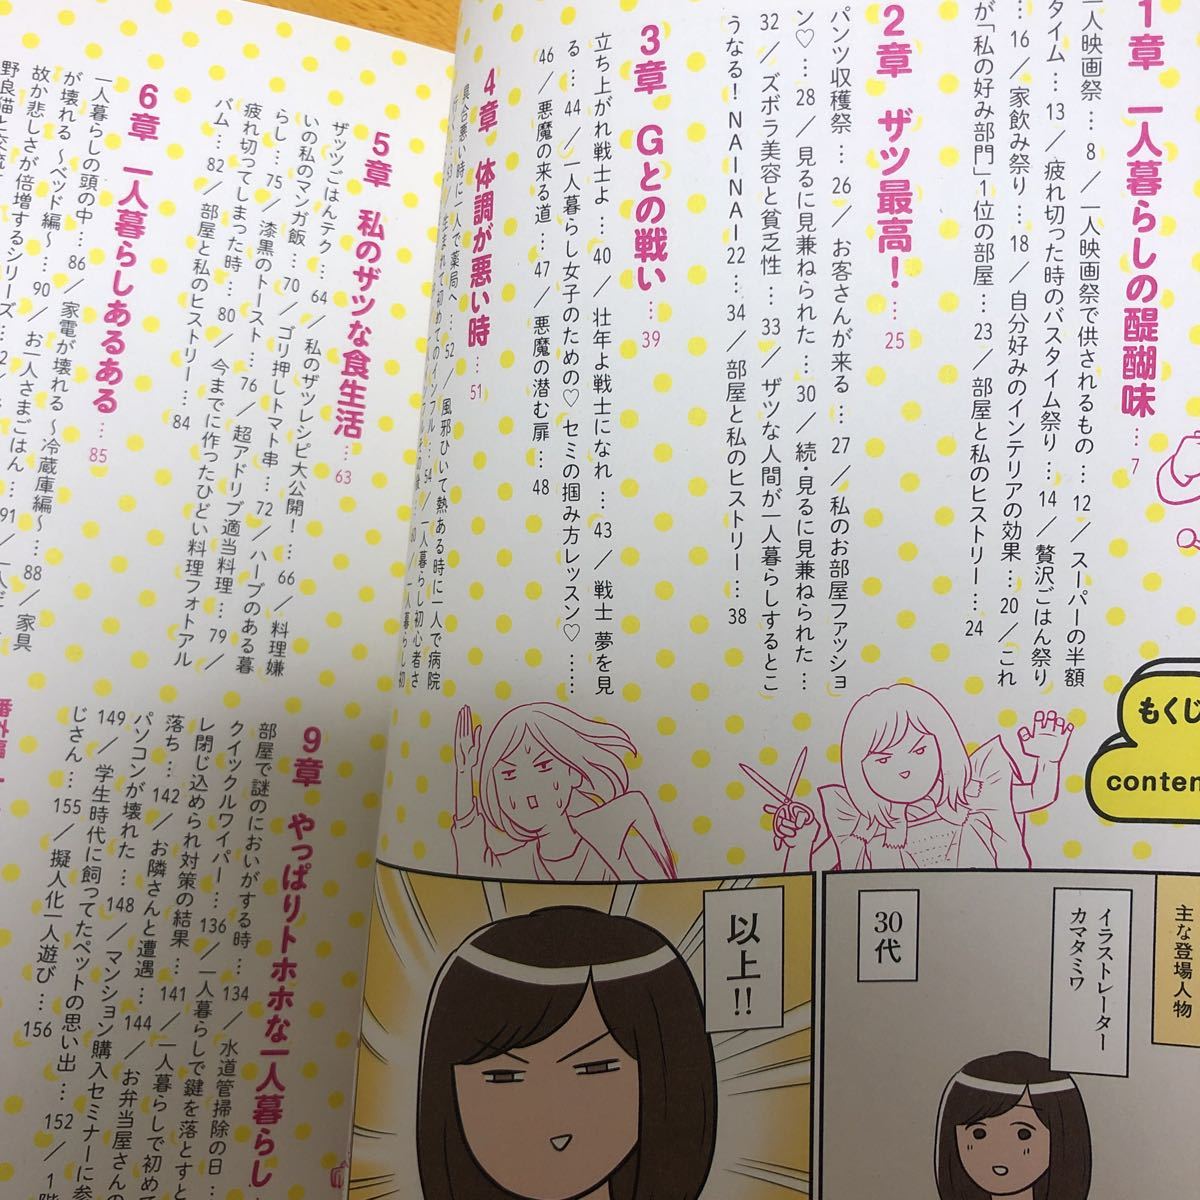 もくじ
conten
1章 一人暮らしの醍醐味…7
一人映画祭…8／一人映画祭で供されるもの…12／スーパーの半額
タイム…13／疲れ切った時のバスタイム祭り…14／贅沢ごはん祭り
…16／家飲み祭り…18／自分好みのインテリアの効果…20／これ
が「私の好み部門」1位の部屋…23／部屋と私のヒストリー…24
2章 ザツ最高！…25
パンツ収穫祭…26／お客さんが来る…27／私のお部屋ファッショ
ン♡…28／見るに見兼ねられた…30／続・見るに見兼ねられた…
32／ズボラ美容と貧乏性…33／ザツな人間が一人暮らしするとこ
うなる！NAINAI22…34／部屋と私のヒストリー…38
3章 Gとの戦い…39
立ち上がれ戦士よ…40／壮年よ戦士になれ…43／戦士 夢を見
る…44／一人暮らし女子のための♡セミの掴み方レッスン♡……
46／悪魔の来る道…47／悪魔の潜む扉…48
4章 体調が悪い時…51
具合悪い時に一人で薬局へ…52／風邪ひいて熱ある時に一人で病院
5章 私のザツな食生活…63
ザッツごはんテク…64／私のザツレシピ大公開！…66／料理嫌
いの私のマンガ飯…70／ゴリ押しトマト串…72／ハーブのある暮
らし…75／漆黒のトースト…76／超アドリブ適当料理…79／
疲れ切ってしまった時…80／今までに作ったひどい料理フォトアル
バム…82／部屋と私のヒストリー…84
6章 一人暮らしあるある…85
一人暮らしの頭の中…86／家電が壊れる〜冷蔵庫編〜…88／家具
が壊れる〜ベッド編〜…90／お一人さまごはん…91／一人だ
故か悲しさが倍増するシリーズ…
9章 やっぱりトホホな一人暮らし
部屋で謎のにおいがする時…134／水道管掃除の日…
クイックルワイパー…136／一人暮らしで鍵を落とすと
レ閉じ込められ対策の結果…141／一人暮らしで初めて
落ち…142／お隣さんと遭遇…144／お弁当屋さんの
パソコンが壊れた…148／マンション購入セミナーに参
149／学生時代に飼ってたペットの思い出…152／1階
じさん…155／擬人化一人遊び…156
主な登場人物
イラストレーター
カマタミワ
30代
以上!!